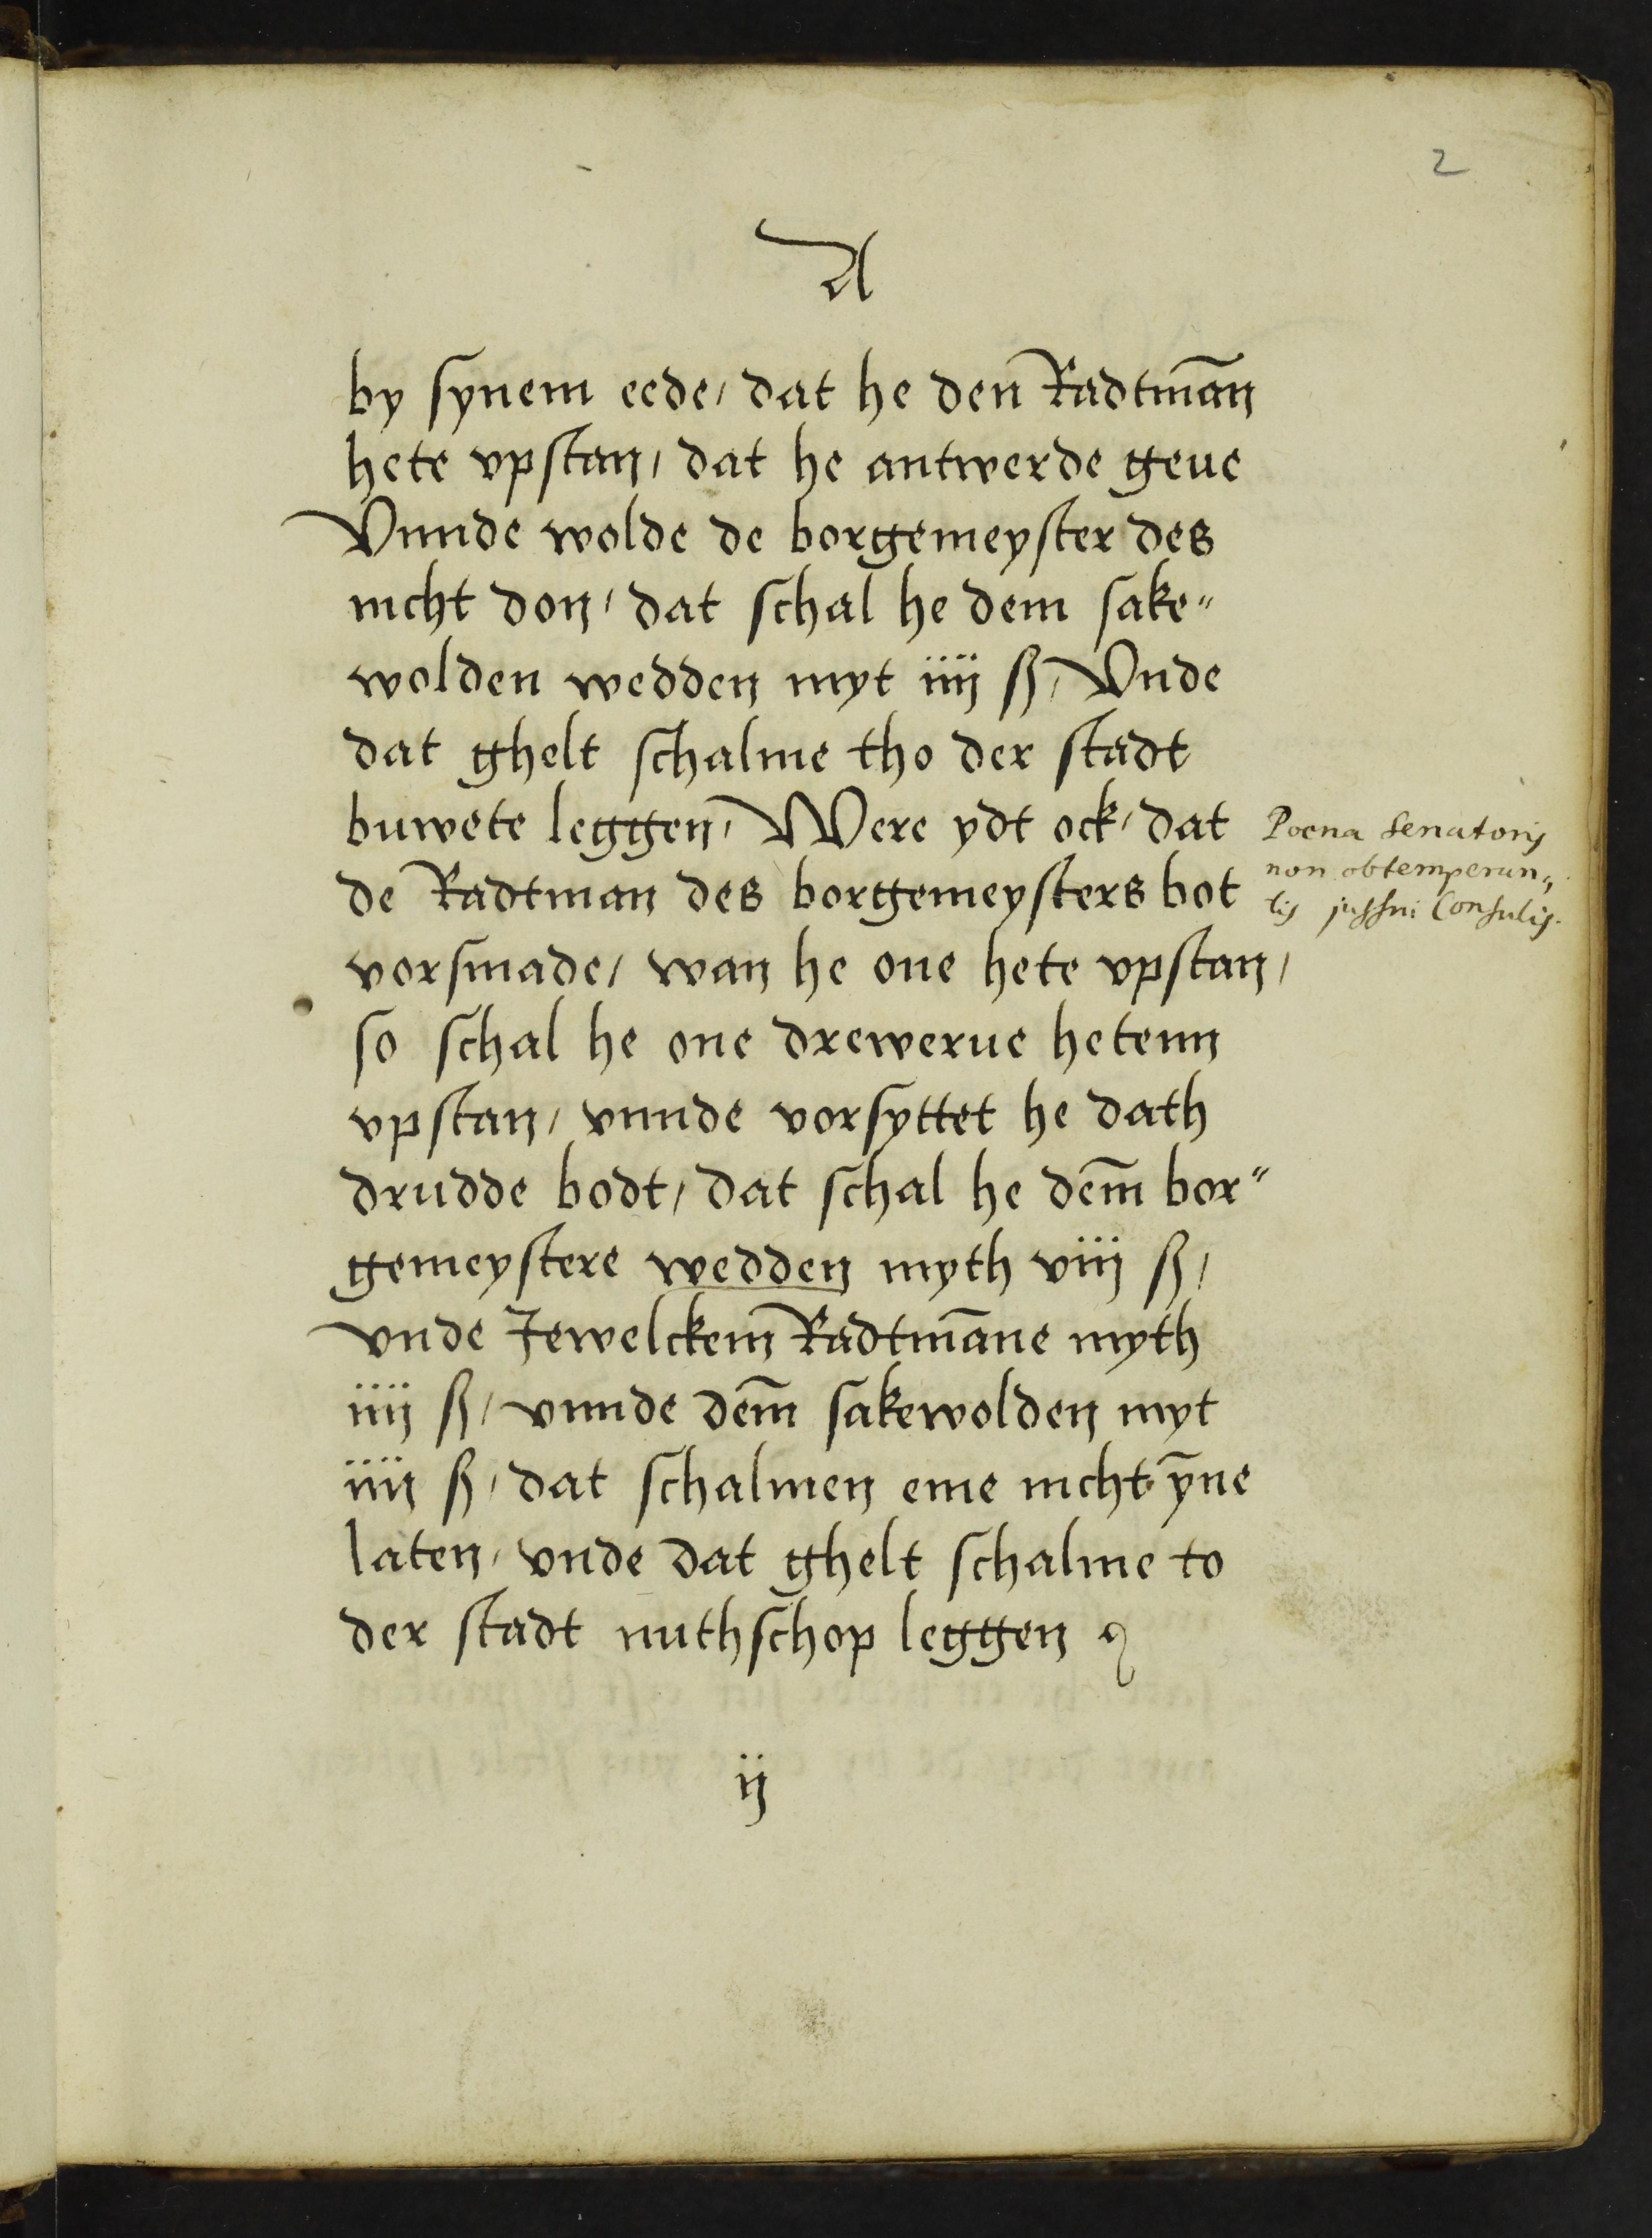 2
A
by synem eede, dat he den Radtma̅n
hete vpstan, dat he antwerde geue
Vnnde wolde de borgemeyster des
nicht don, dat schal he dem sake"
wolden wedden myt iiij ß, Vnde
dat ghelt schalme tho der stadt
buwete leggen, Were ydt ock, dat
de Radtman des borgemeysters bot
vorsmade, wan he one hete vpstan,
so schal he one drewerue hetenn
vpstan, vnnde vorsyttet he dath
drudde bodt, dat schal he de̅m bor"
gemeystere wedden myth viij ß,
vnde Jewelckem Radtma̅ne myth
iiij ß, vnnde de̅m sakewolden myt
iiij ß, dat schalmen eme nicht y̅ne
laten, vnde dat ghelt schalme to
der stadt nuthschop leggen
Poena Senatoris
non obtemperan„
tis jussui Consulis.
ij